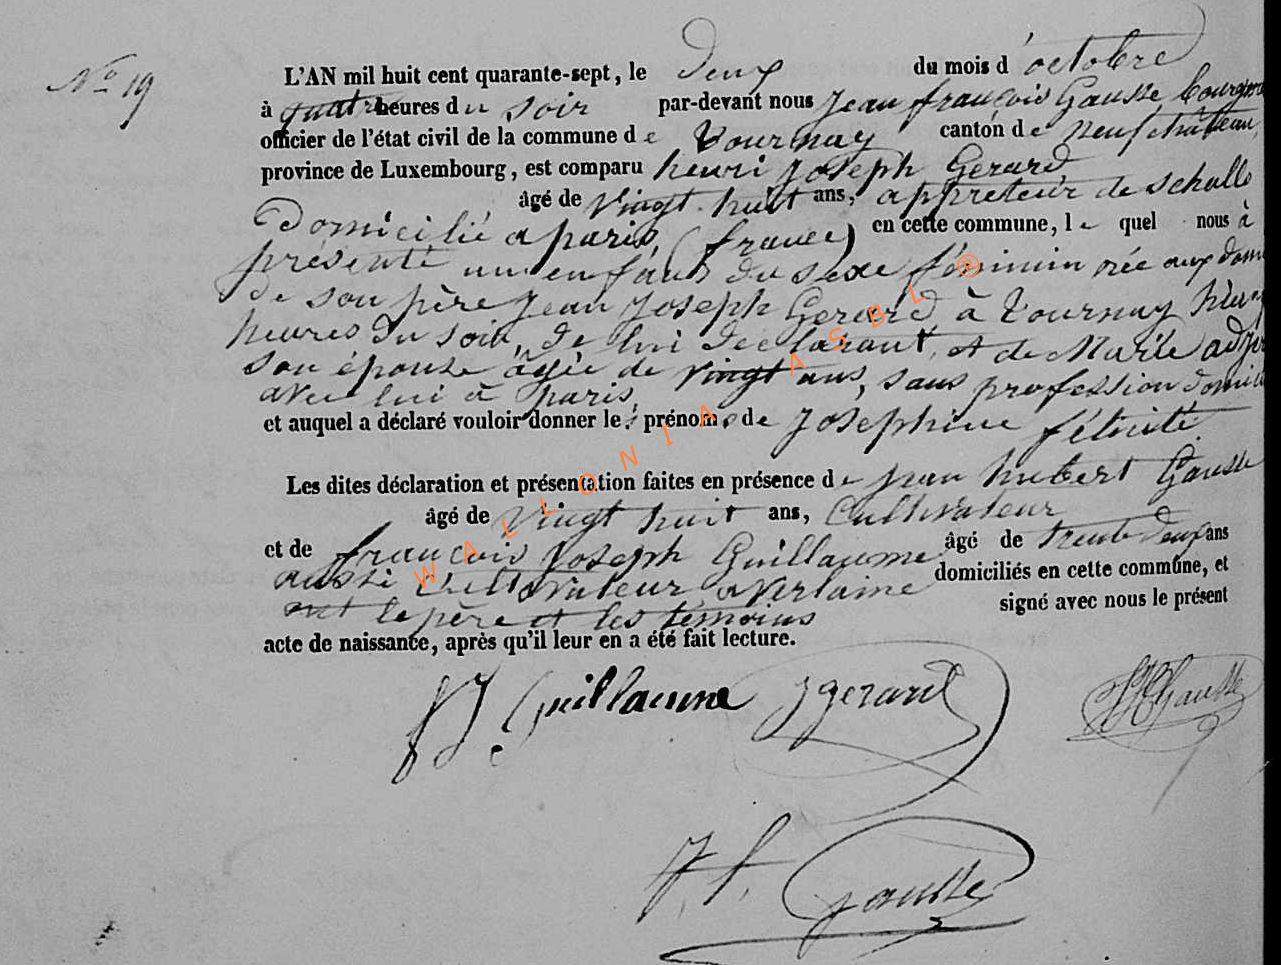 No 19
L'AN mil huit cent quarante-sept, le deux du mois d'octobre
à quatre heures du soir par-devant nous Jean françois Gausse bourgm
officier de l'état civil de la commune de Tournay canton de neufchâteau,
province de Luxembourg, est comparu henri Joseph Gerard
âgé de vingt huit ans, appreteur de schalle
Domicilié a paris, (france) en cette commune, le quel nous à
présenté un enfant du sexe féminin née aux domi
de son père Jean Joseph Gerard à Tournay
heures du soir, de lui declarant, et de Marie
son épouse âgée de vingt ans, sans profession domici
avec lui à paris,
et auquel a déclaré vouloir donner les prénoms de Joséphine félicité
Les dites déclaration et présentation faites en présence de jean hubert Gausse
âgé de vingt huit ans, Cultivateur
et de françois Joseph Guillaume âgé de trente deux ans
aussi Cultivateur a verlaine domiciliés en cette commune, et
ont le père et les témoins signé avec nous le présent
acte de naissance, après qu'il leur en a été fait lecture.
fJ. Guillaume Jgerard JHGausse
J. f. Gausse
WALLONIA ASBL ®